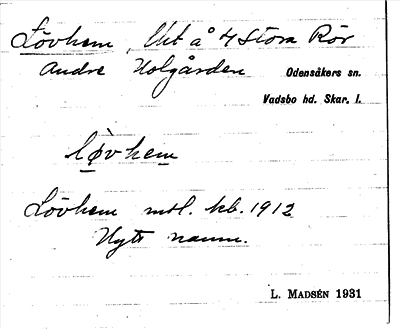 Lövhem, Uht å 4 Stora Rör
Andre Holgården Odensåkers sn.
Vadsbo hd. Skar. l.
løvhem
Lövhem mtl. kb. 1912
Nytt namn.
L. MADSÉN 1931